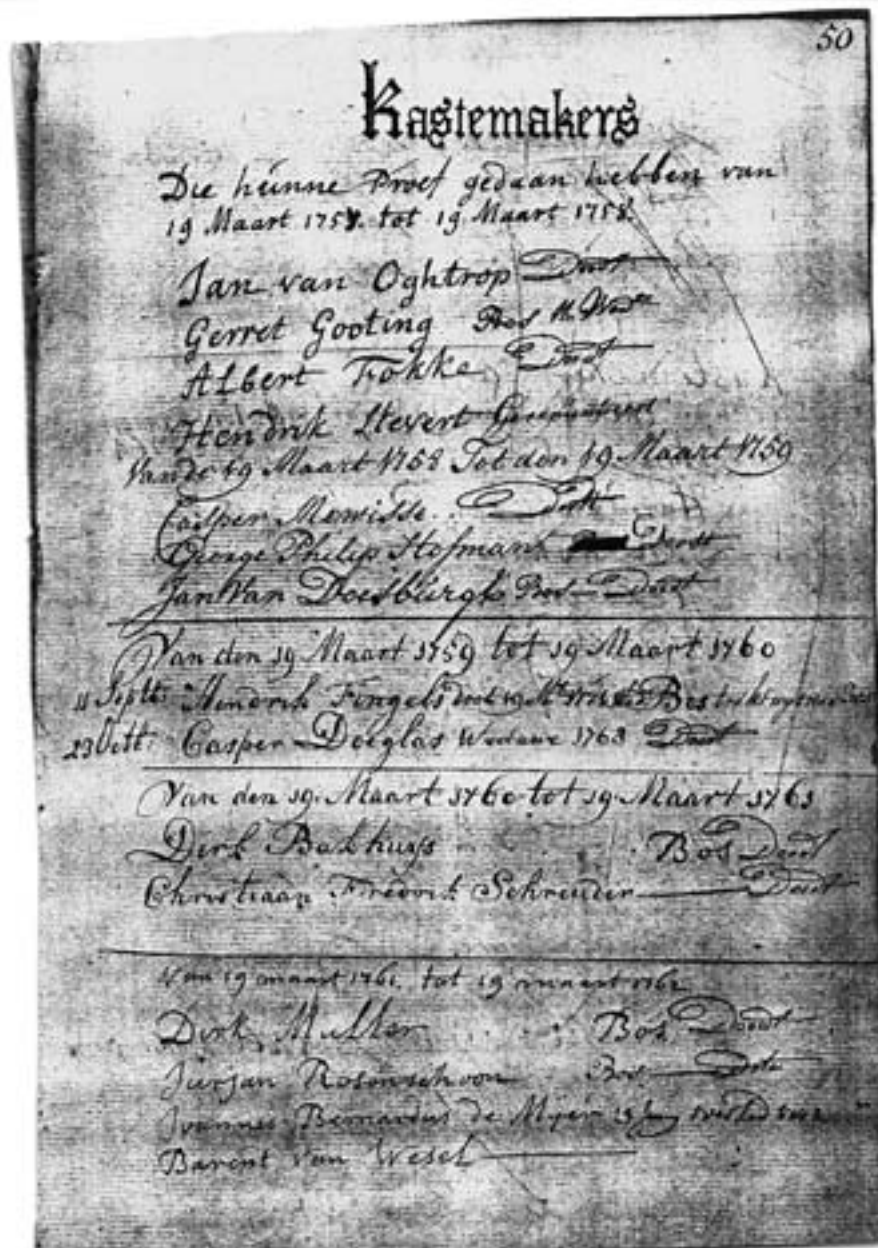 50
Kastemakers
Die hunne Proef gedaan hebben van
19 Maart 1757. tot 19 Maart 1758.
Jan van Oghtrop Doot
Gerret Gooting Bos
Albert Fokke Doot
Hendrik Stevert
Van de 19 Maart 1758 Tot den 19 Maart 1759
Casper Mewisse.. Doot
George Philip Hofman Doodt
Jan Van Doesburgh Bos Doot
Van den 19 Maart 1759 tot 19 Maart 1760
11 Septt: Hendrik Fingels doot Bos
23 Octt: Casper Doeglas Weduwe 1768 Doot
Van den 19. Maart 1760 tot 19. Maart 1761
Derk Bakhuys Bos Doodt
Christiaan Fredrik Schreuder Doodt
Van 19 maart 1761. tot 19 maart 1762
Dirk Muller Bos Doodt
Jurjan Rosenschoon Bos
Johannes Bernardus de Mijer
Barent van Wesel